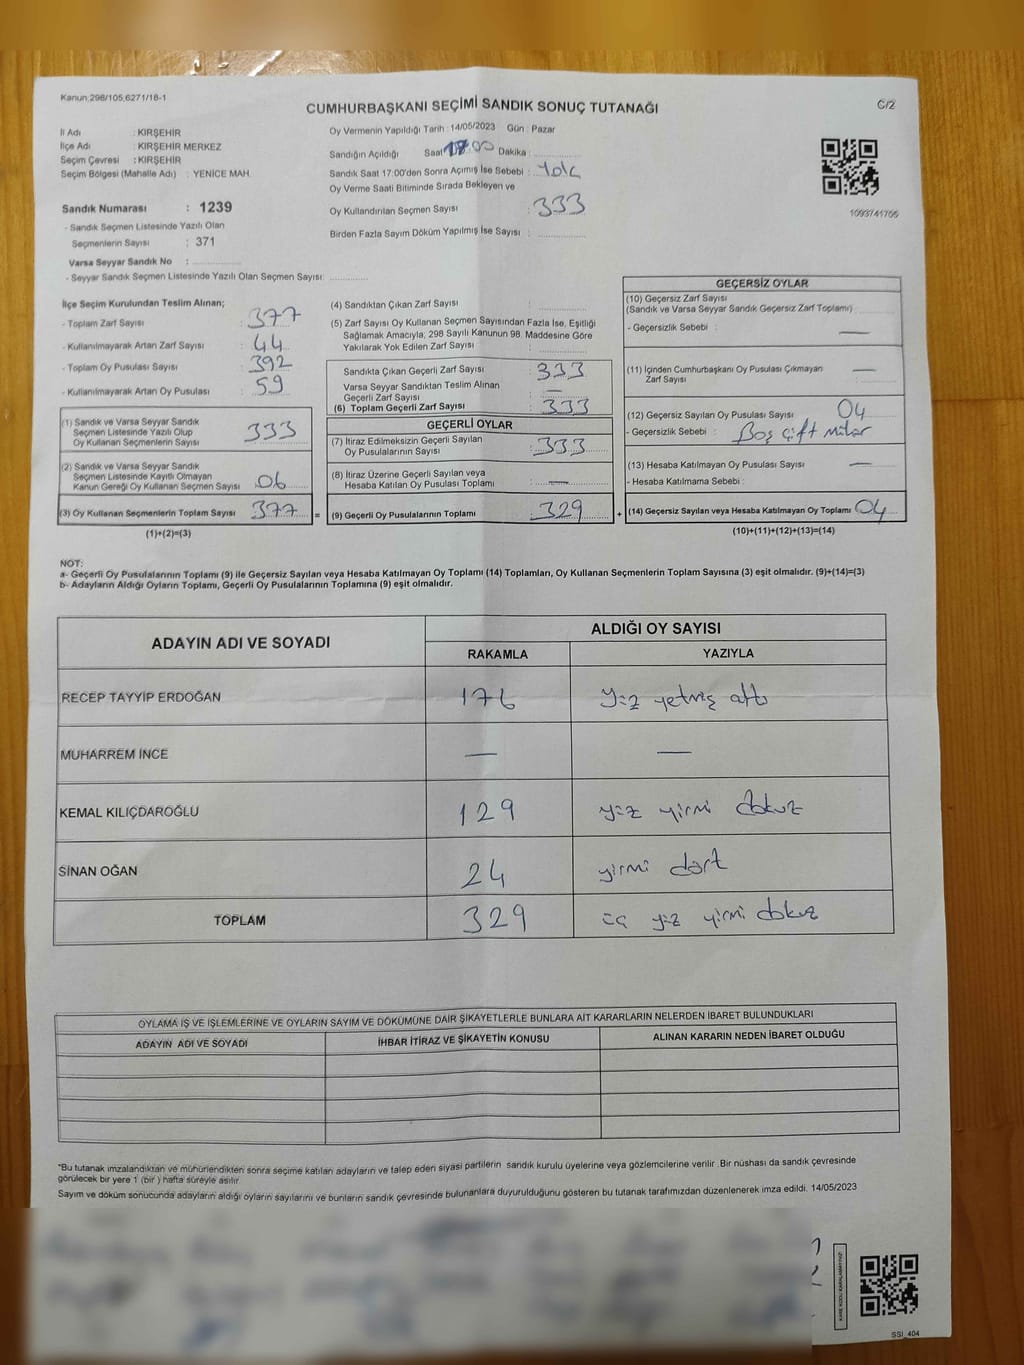 Kanun:298/105,6271/18-1
CUMHURBAŞKANI SEÇİMİ SANDIK SONUÇ TUTANAĞI
C/2
İl Adı : KIRŞEHİR
İlçe Adı : KIRŞEHİR MERKEZ
Seçim Çevresi : KIRŞEHİR
Seçim Bölgesi (Mahalle Adı) : YENİCE MAH.
Sandık Numarası : 1239
- Sandık Seçmen Listesinde Yazılı Olan
Seçmenlerin Sayısı : 371
Varsa Seyyar Sandık No :
- Seyyar Sandık Seçmen Listesinde Yazılı Olan Seçmen Sayısı:
Oy Vermenin Yapıldığı Tarih : 14/05/2023 Gün : Pazar
Sandığın Açıldığı Saat 17:00 Dakika :
Sandık Saat 17:00'den Sonra Açımış İse Sebebi : Yok
Oy Verme Saati Bitiminde Sırada Bekleyen ve
Oy Kullandırılan Seçmen Sayısı : 333
Birden Fazla Sayım Döküm Yapılmış İse Sayısı :
1093741706
İlçe Seçim Kurulundan Teslim Alınan;
- Toplam Zarf Sayısı : 377
- Kullanılmayarak Artan Zarf Sayısı : 44
- Toplam Oy Pusulası Sayısı : 392
- Kullanılmayarak Artan Oy Pusulası : 59
(1) Sandık ve Varsa Seyyar Sandık
Seçmen Listesinde Yazılı Olup
Oy Kullanan Seçmenlerin Sayısı : 333
(2) Sandık ve Varsa Seyyar Sandık
Seçmen Listesinde Kayıtlı Olmayan
Kanun Gereği Oy Kullanan Seçmen Sayısı : 06
(3) Oy Kullanan Seçmenlerin Toplam Sayısı : 377 =
(1)+(2)=(3)
(4) Sandıktan Çıkan Zarf Sayısı :
(5) Zarf Sayısı Oy Kullanan Seçmen Sayısından Fazla İse, Eşitliği
Sağlamak Amacıyla, 298 Sayılı Kanunun 98. Maddesine Göre
Yakılarak Yok Edilen Zarf Sayısı :
Sandıkta Çıkan Geçerli Zarf Sayısı : 333
Varsa Seyyar Sandıktan Teslim Alınan
Geçerli Zarf Sayısı : —
(6) Toplam Geçerli Zarf Sayısı : 333
GEÇERLİ OYLAR
(7) İtiraz Edilmeksizin Geçerli Sayılan
Oy Pusulalarının Sayısı : 333
(8) İtiraz Üzerine Geçerli Sayılan veya
Hesaba Katılan Oy Pusulası Toplamı : —
(9) Geçerli Oy Pusulalarının Toplamı : 329 +
GEÇERSİZ OYLAR
(10) Geçersiz Zarf Sayısı
(Sandık ve Varsa Seyyar Sandık Geçersiz Zarf Toplamı) :
- Geçersizlik Sebebi : —
(11) İçinden Cumhurbaşkanı Oy Pusulası Çıkmayan
Zarf Sayısı : —
(12) Geçersiz Sayılan Oy Pusulası Sayısı : 04
- Geçersizlik Sebebi : Boş çift mühür
(13) Hesaba Katılmayan Oy Pusulası Sayısı : —
- Hesaba Katılmama Sebebi :
(14) Geçersiz Sayılan veya Hesaba Katılmayan Oy Toplamı : 04
(10)+(11)+(12)+(13)=(14)
NOT:
a- Geçerli Oy Pusulalarının Toplamı (9) ile Geçersiz Sayılan veya Hesaba Katılmayan Oy Toplamı (14) Toplamları, Oy Kullanan Seçmenlerin Toplam Sayısına (3) eşit olmalıdır. (9)+(14)=(3)
b- Adayların Aldığı Oyların Toplamı, Geçerli Oy Pusulalarının Toplamına (9) eşit olmalıdır.
ADAYIN ADI VE SOYADI
ALDIĞI OY SAYISI
RAKAMLA YAZIYLA
RECEP TAYYİP ERDOĞAN 176 yüz yetmiş altı
MUHARREM İNCE — —
KEMAL KILIÇDAROĞLU 129 yüz yirmi dokuz
SİNAN OĞAN 24 yirmi dört
TOPLAM 329 üç yüz yirmi dokuz
OYLAMA İŞ VE İŞLEMLERİNE VE OYLARIN SAYIM VE DÖKÜMÜNE DAİR ŞİKAYETLERLE BUNLARA AİT KARARLARIN NELERDEN İBARET BULUNDUKLARI
ADAYIN ADI VE SOYADI İHBAR İTİRAZ VE ŞİKAYETİN KONUSU ALINAN KARARIN NEDEN İBARET OLDUĞU
*Bu tutanak imzalandıktan ve mühürlendikten sonra seçime katılan adayların ve talep eden siyasi partilerin sandık kurulu üyelerine veya gözlemcilerine verilir .Bir nüshası da sandık çevresinde
görülecek bir yere 1 (bir ) hafta süreyle asılır.
Sayım ve döküm sonucunda adayların aldığı oyların sayılarını ve bunların sandık çevresinde bulunanlara duyurulduğunu gösteren bu tutanak tarafımızdan düzenlenerek imza edildi. 14/05/2023
KARE KODU KARALAMAYINIZ!
SSI_404